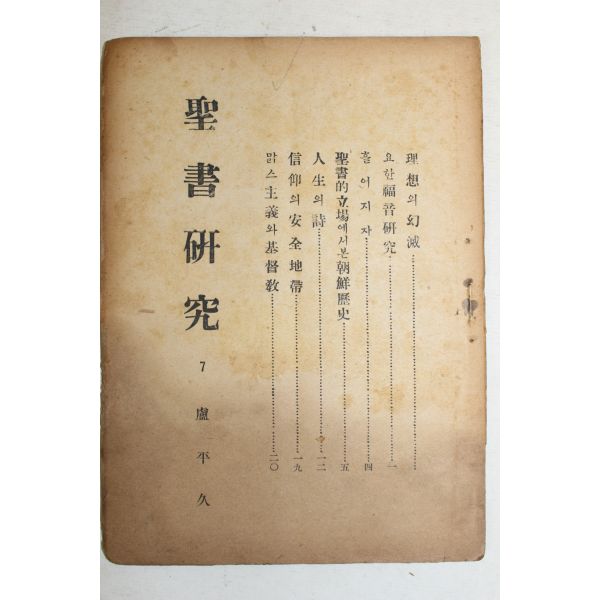 理想의幻滅
요한福音硏究……一
흩어지자……四
聖書的立場에서본朝鮮歷史……五
人生의詩……一二
信仰의安全地帶……一九
맑스主義와基督敎……二〇
聖書硏究 7 盧平久